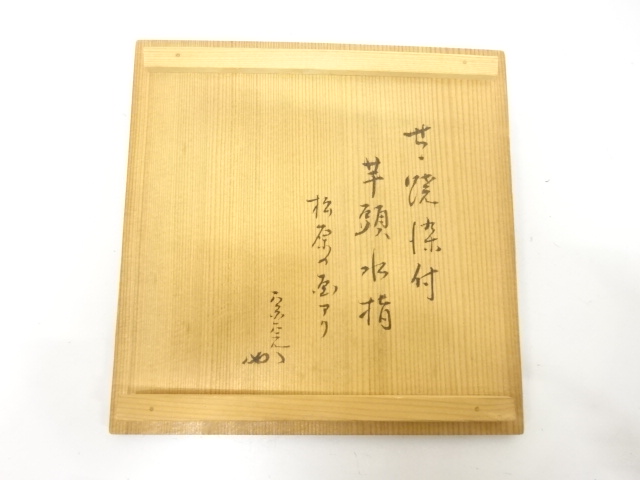 焼染付
芋頭水指
松原の画アリ